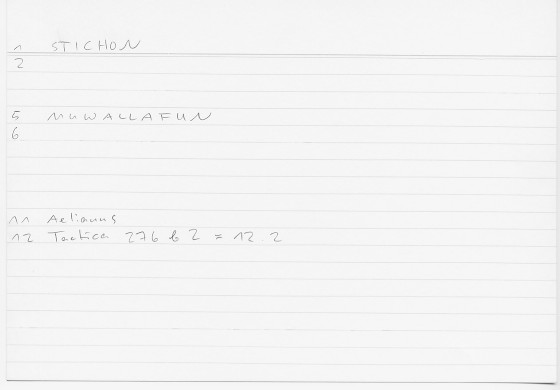 1 STICHON
2
5 MUWALLAFUN
6
11 Aelianus
12 Tactica 276 b 2 = 12.2